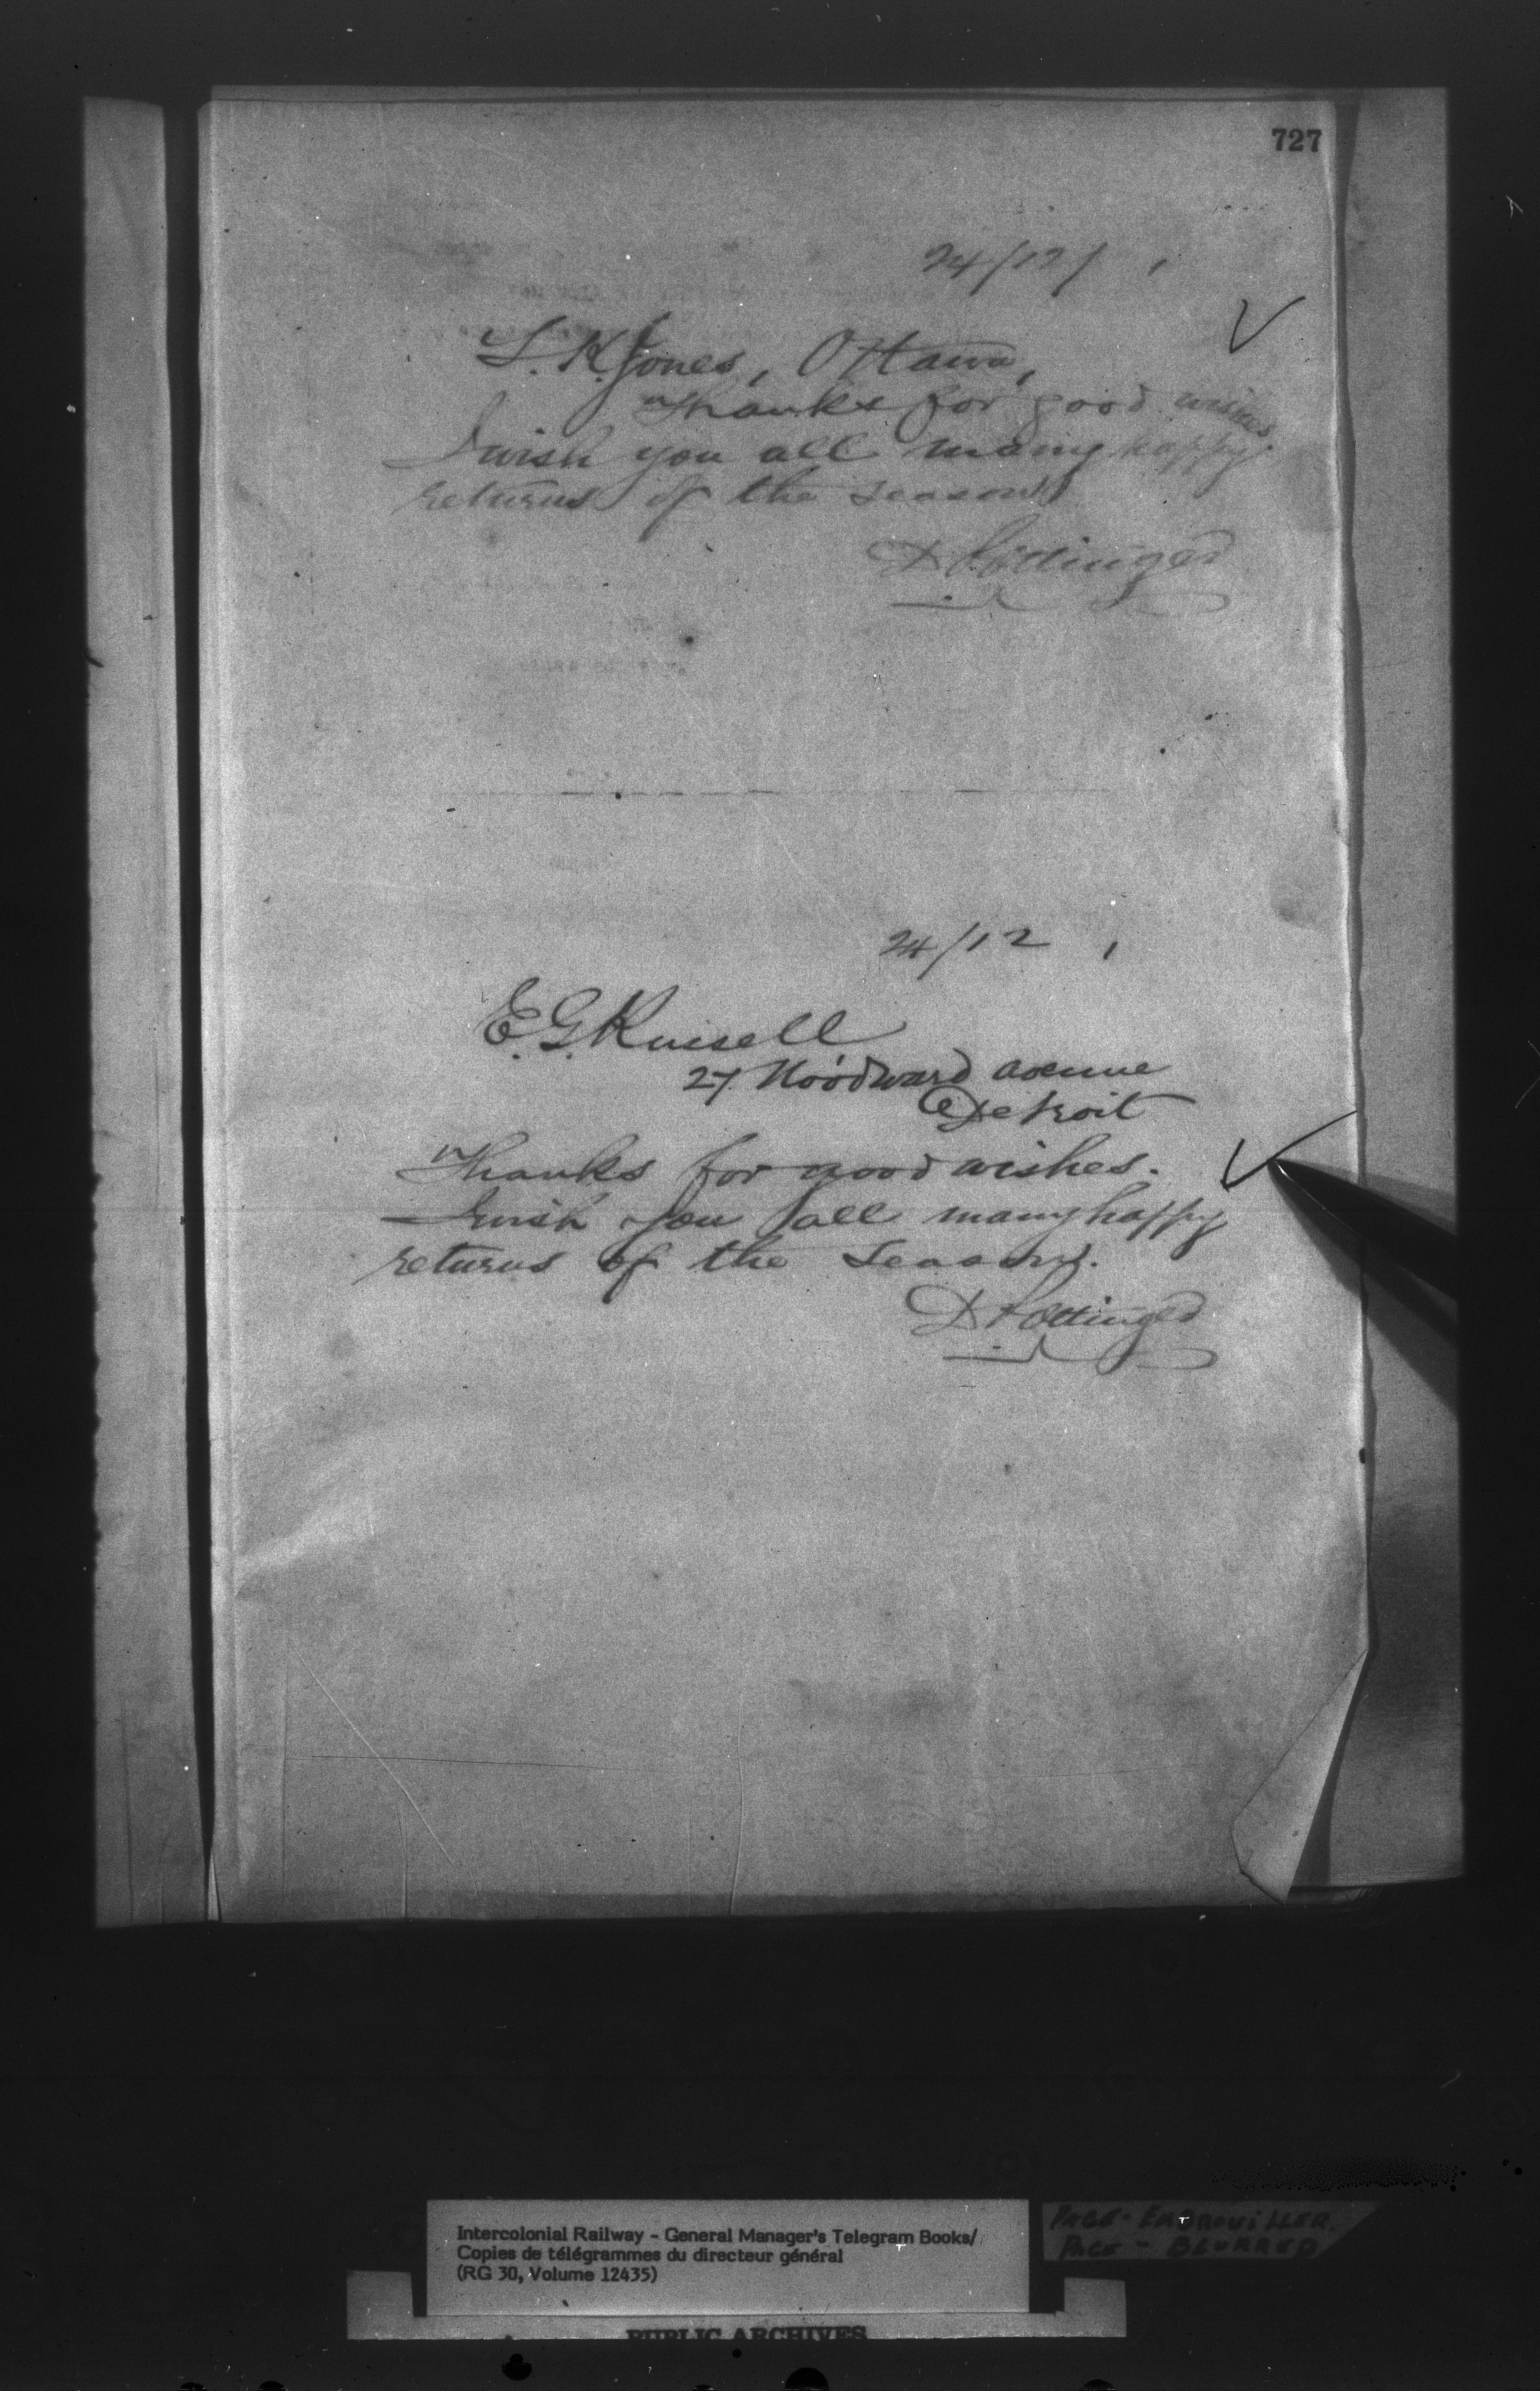 727
24/12/ 1
L. K. Jones, Ottawa,
Thanks for good wishes.
I wish you all many happy
returns of the season.
D Pottinger
24/12 1
E. G. Russell
27 Woodward avenue
Detroit
Thanks for good wishes.
I wish you all many happy
returns of the season.
D Pottinger
Intercolonial Railway - General Manager's Telegram Books/
Copies de télégrammes du directeur général
(RG 30, Volume 12435)
PAGE - EMBROUILLER
PAGE - BLURRED
PUBLIC ARCHIVES